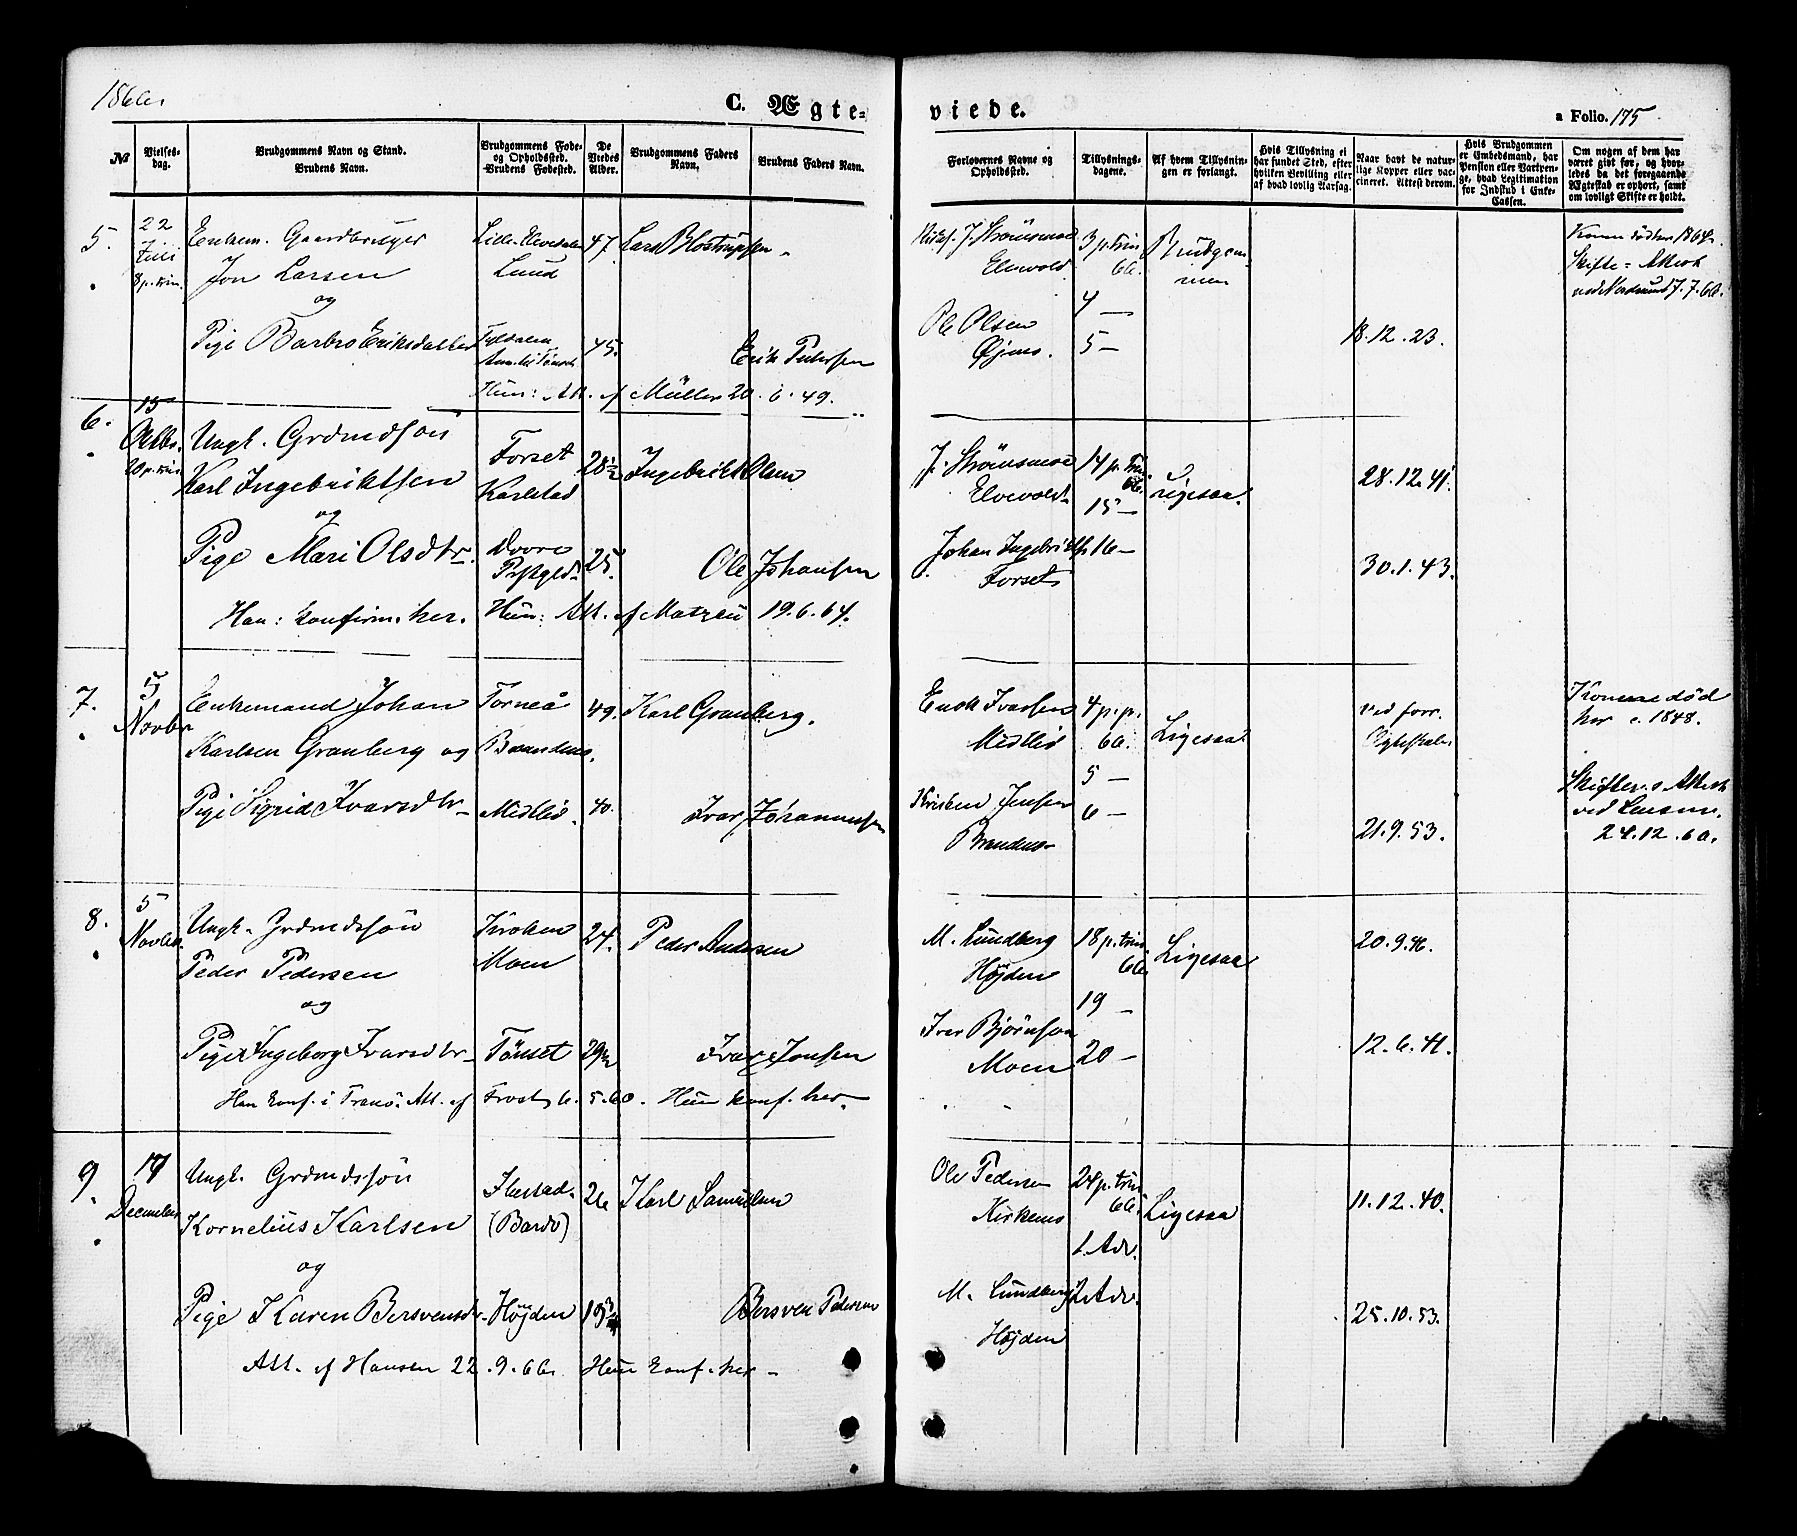 1866.
C. Ægte-
viede.
a Folio. 175.
№
Vielses-
dag.
Brudgommens Navn og Stand.
Brudens Navn.
Brudgommens Føde-
og Opholdssted.
Brudens Fødested.
De
Viedes
Alder.
Brudgommens Faders
Navn.
Brudens Faders Navn.
Forlovernes Navne og
Opholdssted.
Tillysnings-
dagene.
Af hvem Tillysnin-
gen er forlangt.
Hvis Tillysning ei
har fundet Sted, efter
hvilken Bevilling eller
af hvad lovlig Aarsag.
Naar havt de natur-
lige Kopper eller vac-
cineret. Attest derom.
Hvis Brudgommen
er Embedsmand, har
Pension eller Vartpen-
ge, hvad Legitimation
for Indskud i Enke-
Cassen.
Om nogen af dem har
været givt før, og hvor-
ledes da det foregaaende
Ægteskab er ophørt, samt
om lovligt Skifte er holdt.
5.
22
Juli
8 p. trin.
Enkem. Gaardbruger
Jon Larsen
og
Pige Barbro Eriksdatter
Lille-Elvedalen
Lund
Tyldalen
47.
45.
Lars Blostrupsen
Erik Pedersen
Hun: Att. af Müller 20.6.49.
J. Strömsmoe
Elvevold
Ole Olsen
Øjens.
3 p. trin
66.
4 —
5 —
Brudgom-
men
18.12.23.
Konen død her 1864.
Skifte-Attest
7.7.66.
6.
15
Octbr.
20 p. trin.
Ungk. Grdmdsøn
Karl Ingebriktsen
og
Pige Mari Olsdtr.
Han: konfirm. her.
Forset
Karlstad
Dovre
Præstgjd.
28½
25.
Ingebrikt Olsen
Ole Johansen
Hun: Att. af Matzau 19.6.64.
J. Strömsmoe
Elvevold
Johan Ingebriktsen
Forset
14 p. Trin
66.
15 —
16 —
Ligesaa.
28.12.41.
30.1.43.
7.
5
Novbr
Enkemand Johan
Karlsen Granberg og
Pige Sigrid Ivarsdtr
Torneå
Brandmo.
Midtlid.
49.
40.
Karl Granberg.
Ivar Johannesen
Enok Ivarsen
Midtlid
Kristen Jensen
Brandmo
4 p. p.
66.
5 —
6 —
Ligesaa
ved forr.
Ægteskab.
21.9.53.
Konene død
her c. 1848.
Skifte-Attest
ved
24.12.60.
8.
5
Novbr.
Ungk. Grdmdsøn
Peder Pedersen
og
Pige Ingeborg Ivarsdtr
Kroken
Moen
Tönset
24.
29½
Peder Andersen
Ivar Jonsen
Han konf. i Tranö. Att. af Frost 6.5.60. Hun konf. her.
M. Lundberg
Højden
Iver Björnson
Moen
18 p. trin
66.
19 —
20 —
Ligesaa
20.9.46.
12.6.41.
9.
17
December
Ungk. Grdmdssøn
Kornelius Karlsen
og
Pige Karen Bersvensdr.
(Bardo)
Højden
26
19¾
Karl Samuelsen
Bersven Pedersen
Att. af Hansen 22.9.66. Hun konf. her —
Ole Pedersen
Kirkemo
M. Lundberg
Højden
24 p. trin
66.
1. Adv.
2. Adv.
Ligesaa
11.12.40.
25.10.53.